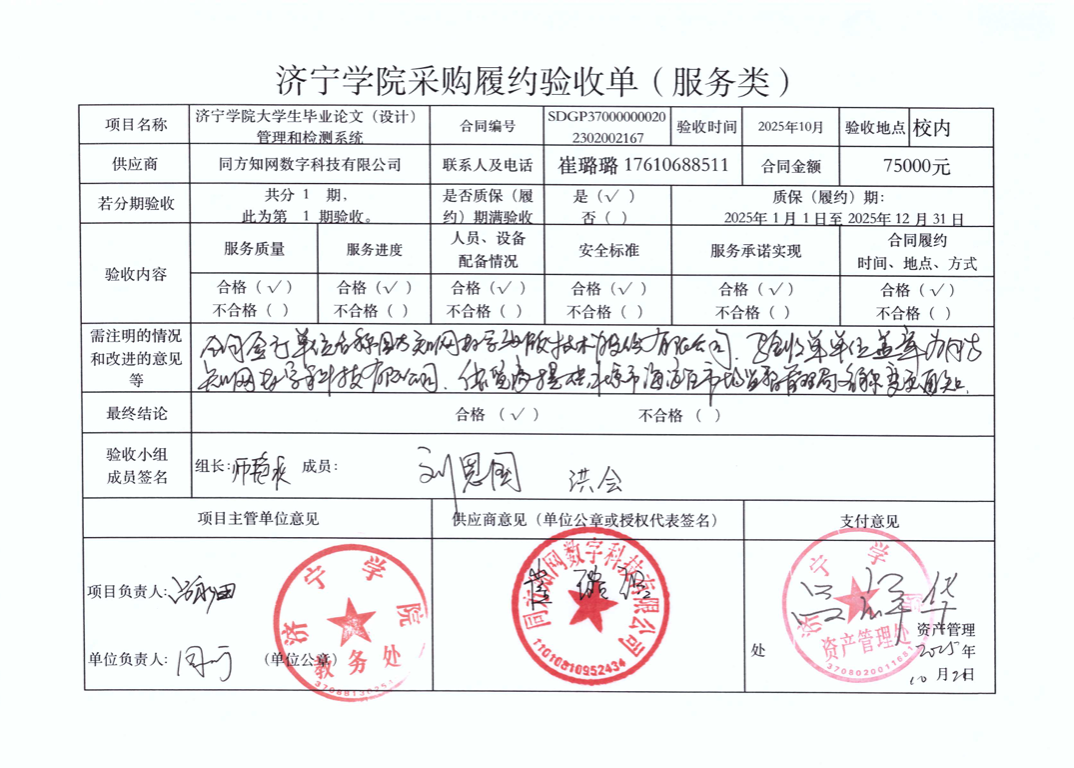 济宁学院采购履约验收单（服务类）
项目名称
济宁学院大学生毕业论文（设计）
管理和检测系统
合同编号
SDGP37000000020
2302002167
验收时间
2025年10月
验收地点
校内
供应商
同方知网数字科技有限公司
联系人及电话
崔璐璐 17610688511
合同金额
75000元
若分期验收
共分 1 期，
此为第 1 期验收。
是否质保（履
约）期满验收
是（√）
否（ ）
质保（履约）期：
2025年 1 月 1 日至 2025年 12 月 31 日
验收内容
服务质量
服务进度
人员、设备
配备情况
安全标准
服务承诺实现
合同履约
时间、地点、方式
合格（√）
不合格（ ）
合格（√）
不合格（ ）
合格（√）
不合格（ ）
合格（√）
不合格（ ）
合格（√）
不合格（ ）
合格（√）
不合格（ ）
需注明的情况
和改进的意见
等
合同签订单位名称同方知网数字出版技术股份有限公司，验收单单位盖章为同方
知网数字科技有限公司，供货商提供北京市海淀区市场监督管理局名称变更通知.
最终结论
合格（√）
不合格（ ）
验收小组
成员签名
组长：
成员：
刘恩国
洪会
项目主管单位意见
供应商意见（单位公章或授权代表签名）
支付意见
项目负责人：
单位负责人：
（单位公章）
济宁学院
教务处
同方知网数字科技有限公司
11010810952434
崔璐璐
济宁学院
资产管理处
3708020011687
资产管理
处
2025年
10月21日